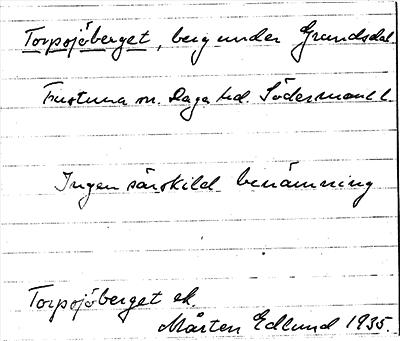 Torpsjöberget, berg under Grundsdal.
Frustuna sn. Daga hd. Södermanl.
Ingen särskild benämning
Torpsjöberget ek.
Mårten Edlund 1935.